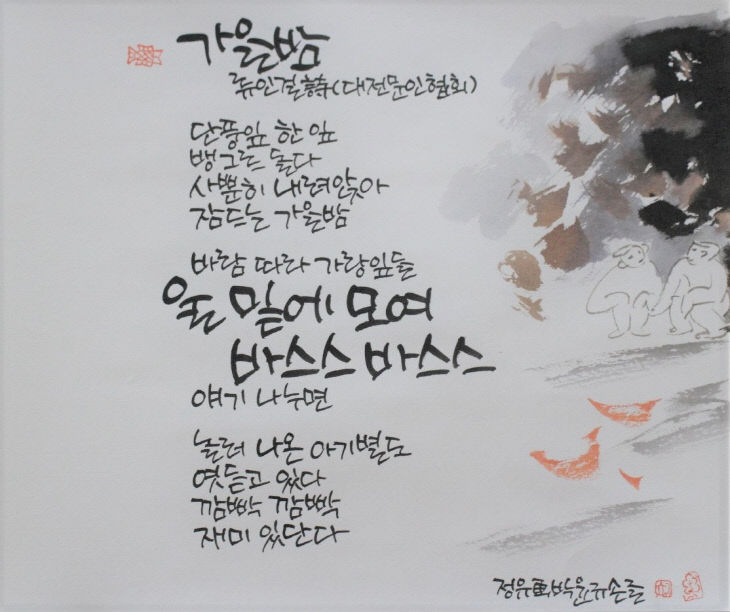 가을밤
류인걸 詩(대전문인협회)
단풍잎 한 잎
뱅그르 돌다
사뿐히 내려앉아
잠드는 가을밤
바람 따라 가랑잎들
울 밑에 모여
바스스 바스스
얘기 나누면
놀러 나온 아기별도
엿듣고 있다
깜빡 깜빡
재미 있단다